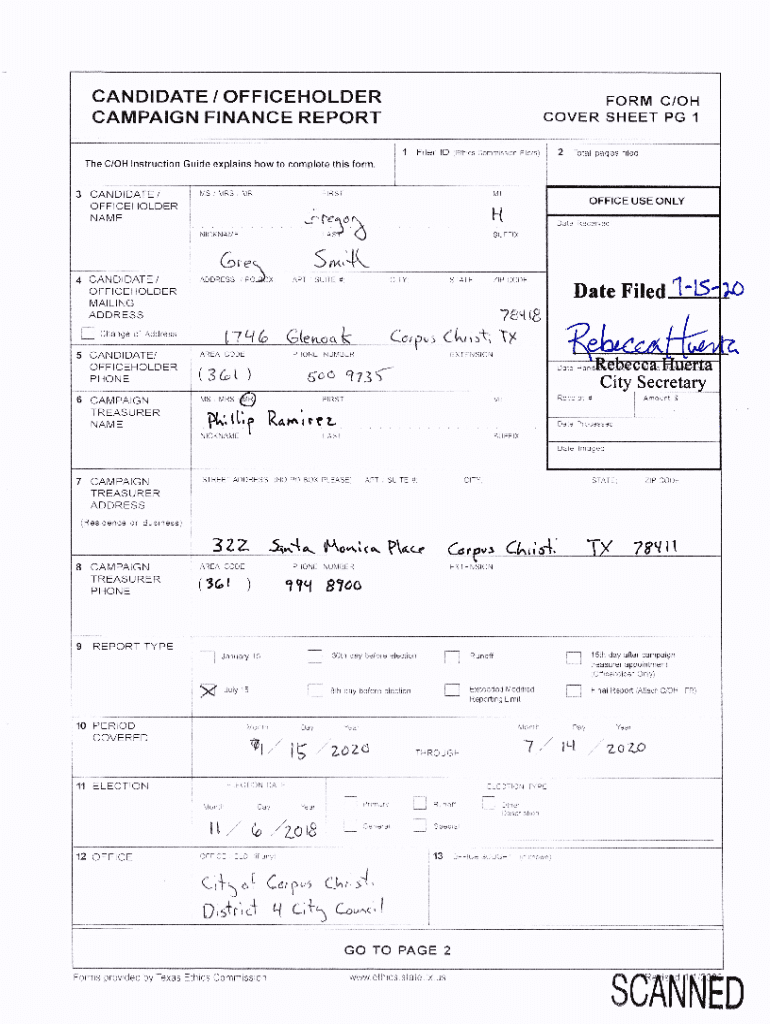 CANDIDATE / OFFICEHOLDER
CAMPAIGN FINANCE REPORT
FORM C/OH
COVER SHEET PG 1
The C/OH Instruction Guide explains how to complete this form.
1 Filer ID (Ethics Commission Filers)
2 Total pages filed
3 CANDIDATE / OFFICEHOLDER NAME
MS / MRS / MR FIRST MI
Gregory H
NICKNAME LAST SUFFIX
Greg Smith
OFFICE USE ONLY
Date Received
Date Filed 7-15-20
Rebecca Huerta
Rebecca Huerta
City Secretary
Receipt # Amount $
Date Processed
Date Imaged
4 CANDIDATE / OFFICEHOLDER MAILING ADDRESS
Change of Address
ADDRESS / PO BOX APT / SUITE # CITY STATE ZIP CODE
78418
1746 Glenoak Corpus Christi TX
5 CANDIDATE/ OFFICEHOLDER PHONE
AREA CODE PHONE NUMBER EXTENSION
(361) 500 9735
6 CAMPAIGN TREASURER NAME
MS / MRS / MR FIRST MI
Phillip Ramirez
NICKNAME LAST SUFFIX
7 CAMPAIGN TREASURER ADDRESS
(Residence or Business)
STREET ADDRESS (NO PO BOX PLEASE) APT / SUITE # CITY; STATE; ZIP CODE
322 Santa Monica Place Corpus Christi TX 78411
8 CAMPAIGN TREASURER PHONE
AREA CODE PHONE NUMBER EXTENSION
(361) 994 8900
9 REPORT TYPE
January 15 30th day before election Runoff 15th day after campaign treasurer appointment (Officeholder Only)
July 15 8th day before election Exceeded Modified Reporting Limit Final Report (Attach C/OH - FR)
10 PERIOD COVERED
Month Day Year Month Day Year
1 / 15 / 2020 THROUGH 7 / 14 / 2020
11 ELECTION
ELECTION DATE ELECTION TYPE
Month Day Year Primary Runoff Other Description
11 / 6 / 2018 General Special
12 OFFICE
OFFICE HELD (if any)
13 OFFICE SOUGHT (if known)
City of Corpus Christi
District 4 City Council
GO TO PAGE 2
Forms provided by Texas Ethics Commission
www.ethics.state.tx.us
SCANNED